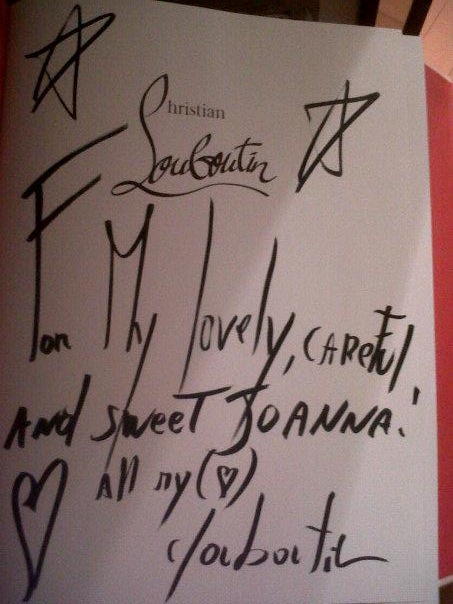 Christian
Louboutin
For My lovely, CAREful,
AND sweet JOANNA!
All my (♡)
Louboutin